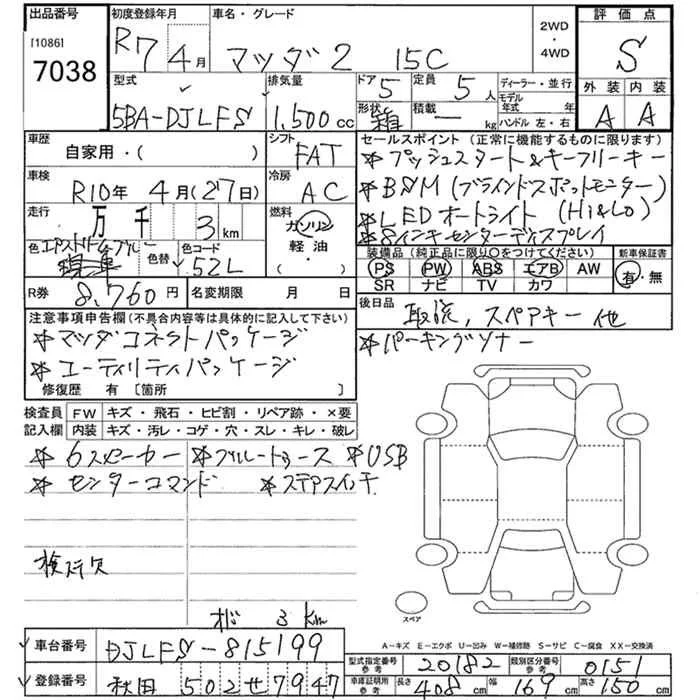 出品番号 初度登録年月 車名・グレード 2WD・4WD 評価点
[1086] 7038 R7年4月 マツダ2 15C S
型式 排気量 ドア 5 定員 5人 ディーラー・並行 外装 内装
5BA-DJLFS 1,500cc 形状 箱 積載 ー kg モデル年式 年 ハンドル 左・右 A A
車歴 自家用・( ) シフト FAT セールスポイント (正常に機能するものに限ります)
＊プッシュスタート&キーフリーキー
車検 R10年4月(27日) 冷房 AC ＊BSM(ブラインドスポットモニター)
走行 万千3km 燃料 ガソリン 軽油・( ) ＊LEDオートライト (Hi&Lo)
＊8インチセンターディスプレイ
色 色替 色コード 52L 装備品 (純正品に限り○をつけてください) 新車保証書
PS PW ABS エアB AW 有・無
SR ナビ TV カワ
R券 8,760円 名変期限 月 日 後日品
取説, スペアキー 他
注意事項申告欄(不具合内容等は具体的に記入して下さい) ＊パーキングソナー
＊マツダコネクトパッケージ
＊ユーティリティパッケージ
修復歴 有 [箇所 ]
検査員記入欄 FW キズ・飛石・ヒビ割・リペア跡・×要
内装 キズ・汚レ・コゲ・穴・スレ・キレ・破レ
＊6スピーカー ＊フルレートゥース ＊USB
＊センターコマンド ＊ステアスイッチ
スペア
3km
A－キズ E－エクボ U－凹み W－補修跡 S－サビ C－腐食 XX－交換済
車台番号 DJLFS-815199 型式指定番号 参考 20182 類別区分番号 参考 0151
登録番号 秋田 502 せ 7947 車庫証明用 参考 長さ 408cm 幅 169cm 高さ 150cm